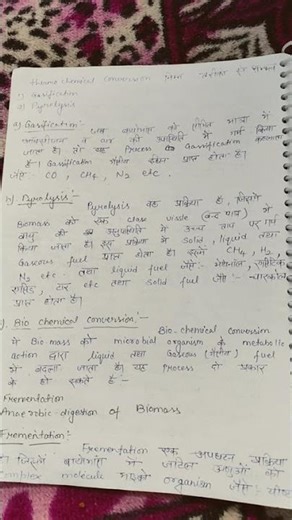 thermo chemical conversion
i) Gasification
ii) Pyrolysis
a) Gasification:- जब बायोमास को सीमित मात्रा में
व जल की उपस्थिति में गर्म किया
जाता है। तो यह Process Gasification कहलाता
है। Gasification गैसीय ईंधन प्राप्त होता है।
जैसे- CO, CH4, N2 etc.
b) Pyrolysis:-
Pyrolysis वह प्रक्रिया है, जिसमें
Biomass को एक Close vissle (बन्द पात्र) में
वायु की अनुपस्थिति में उच्च ताप पर गर्म
किया जाता है। इस प्रक्रिया में Solid, liquid तथा
Gaseous fuel प्राप्त होता है। इसमें CH4, H2,
N2 etc. तथा liquid fuel जैसे:- मेथेनॉल, एसिटिक
एसिड, टार, etc तथा solid fuel जैसे:- चारकोल
प्राप्त होता है।
Bio Chemical Conversion:-
Bio-chemical Conversion
में Bio mass को microbial organism के metabolic
action द्वारा liquid तथा Gaseous (गैसीय) fuel
में बदला जाता है। यह Process दो प्रकार
के हो सकते हैं:-
Frementation
Anaerobic-digestion of Biomass
Fromentation:-
Frementation एक अपघटन प्रक्रिया
जिसमें बायोमास में जटिल अणुओं को
molecule organism जैसे